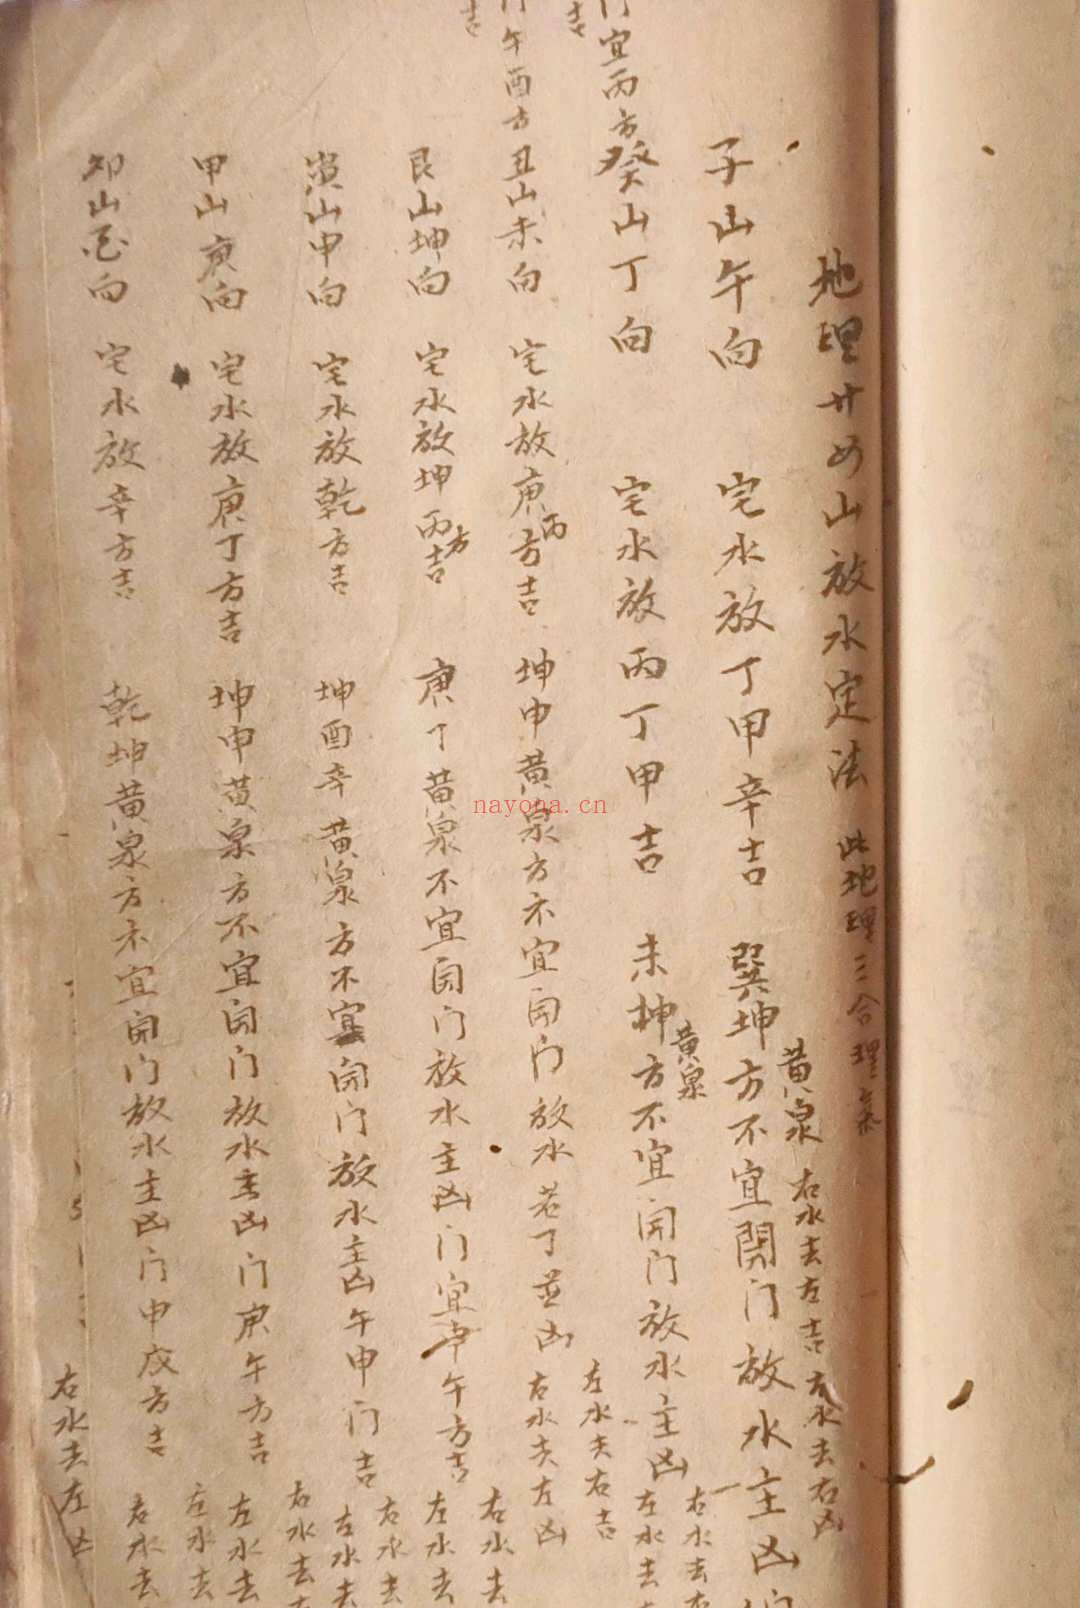 地理廿四山放水定法 此地理三合理氣
子山午向 宅水放丁甲辛吉 巽坤方不宜開门放水主凶
黄泉 右水去左吉 左水去右凶
门宜丙方
癸山丁向 宅水放丙丁甲吉 未坤方不宜開门放水主凶
黄泉
右水去
左水去
吉
左水去右吉
门午酉方
丑山未向 宅水放庚丙方吉 坤申黄泉方不宜開门放水若丁並凶
右水去左凶
吉
艮山坤向 宅水放坤丙方吉 庚丁黄泉不宜開门放水主凶门宜午方吉
右水去
左水去
寅山申向 宅水放乾方吉 坤酉辛黄泉方不宜開门放水主凶午申门吉
右水去
左水去
甲山庚向 宅水放庚丁方吉 坤申黄泉方不宜開门放水主凶门庚午方吉
右水去
左水去
卯山酉向 宅水放辛方吉 乾坤黄泉方不宜開门放水主凶门申戌方吉
左水去
右水去
右水去左凶
nayona.cn